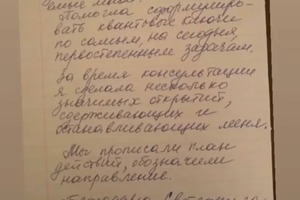 Помогла сформулиро-
вать квантовые ключи
по самым, на сегодня,
первостепенным задачам.
За время консультации
я сделала несколько
значимых открытий,
сдерживающих и
останавливающих меня.
Мы прописали план
действий, обозначили
направление.